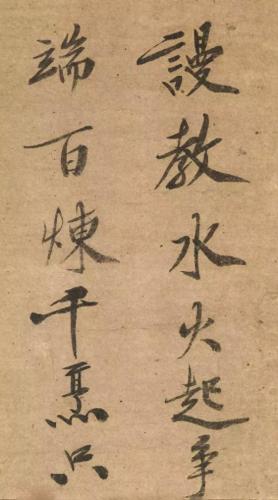 謾教水火起爭
端百煉千烹只